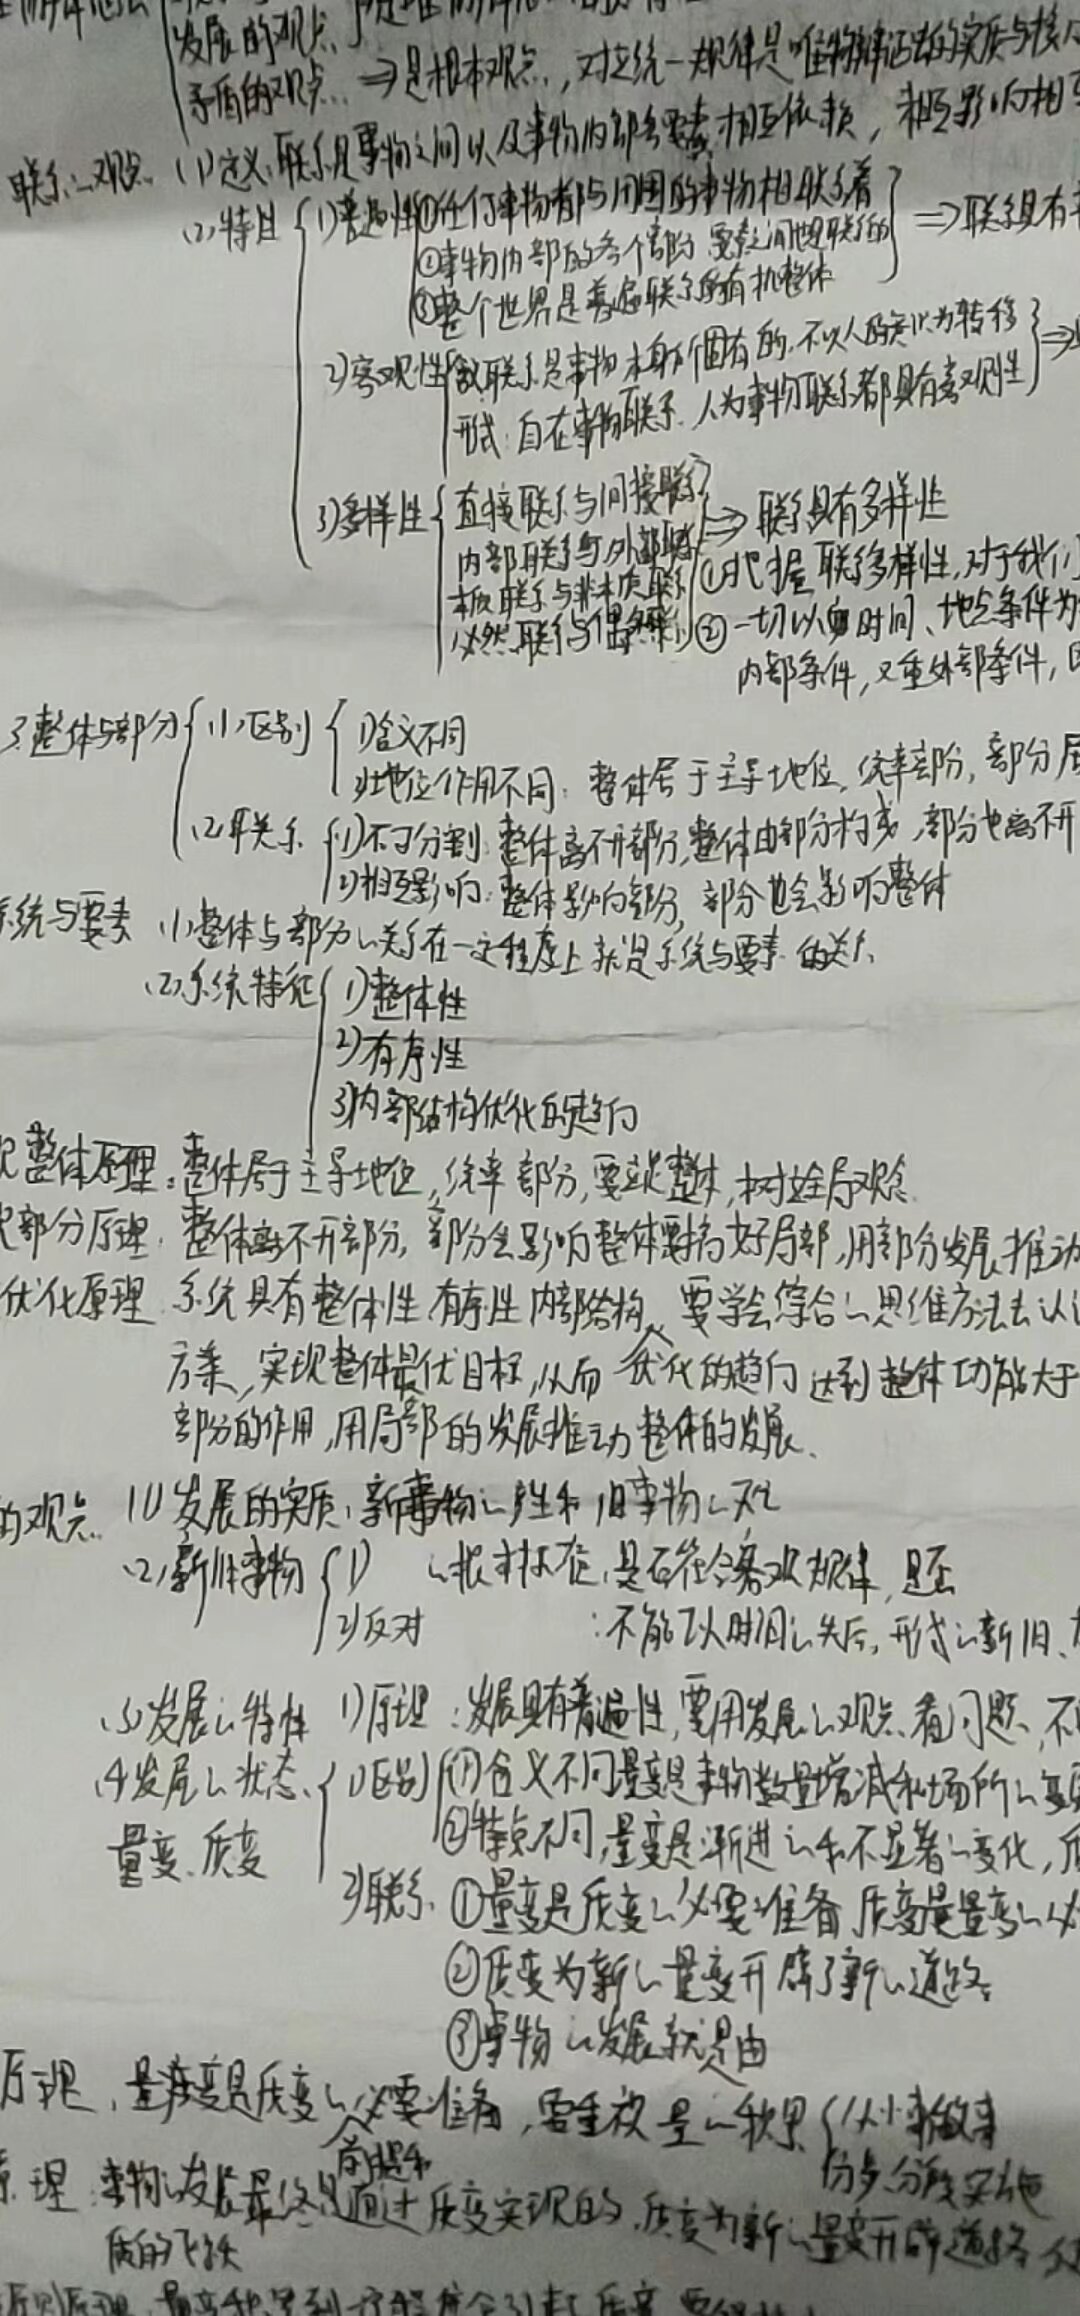 发展的观点
矛盾的观点 ⇒是根本观点,对立统一规律是唯物辩证法的实质与核
联系〻观点 (1)定义:联系是事物之间以及事物内部各要素相互依赖,相互影响相互
(2)特性 1)普遍性①任何事物都与周围的事物相联系着 ⇒联系具有普
②事物内部的各个部分要素之间也是联系的
③整个世界是普遍联系的有机整体
2)客观性 联系是事物本身所固有的,不以人的意识为转移 ⇒
形式:自在事物联系、人为事物联系都具有客观性
3)多样性 直接联系与间接联系 ⇒联系具有多样性
内部联系与外部联系 ①把握联系多样性,对于我们
本质联系与非本质联系
必然联系与偶然联系 ②一切以时间、地点条件为
内部条件,又重外部条件,
3.整体与部分 (1)区别 1)含义不同
2)地位作用不同:整体居于主导地位,统率部分,部分居
(2)联系 1)不可分割:整体离不开部分,整体由部分构成,部分也离不开
2)相互影响:整体影响部分,部分也会影响整体
系统与要素 (1)整体与部分〻关系在一定程度上就是系统与要素的关系
(2)系统特征 1)整体性
2)有序性
3)内部结构优化的趋向
整体原理:整体居于主导地位,统率部分,要立足整体,树立全局观念
部分原理:整体离不开部分,部分会影响整体要搞好局部,用部分发展推动
优化原理 系统具有整体性有序性内部结构 要学会综合〻思维方法去认
方案,实现整体最优目标,从而 优化的趋向 达到整体功能大于
部分的作用,用局部的发展推动整体的发展、
的观点 (1)发展的实质:新事物〻产生和旧事物〻灭亡
(2)新旧事物 1) 〻根本标准:是否符合客观规律,是否
2)反对 :不能以时间〻先后,形式〻新旧、
(3)发展〻特性 1)原理:发展具有普遍性,要用发展〻观点看问题、不
(4)发展〻状态 1)区别 ①含义不同量变是事物数量增减和场所〻变
量变、质变 ②特点不同,量变是渐进〻和不显著〻变化,质
2)联系 ①量变是质变〻必要准备 质变是量变〻必
②质变为新〻量变开辟了新〻道路
③事物〻发展就是由
原理:量变是质变〻必要准备,要重视量〻积累 从小事做起
前提和 分步分阶段实施
原理:事物〻发展最终是通过质变实现的,质变为新〻量变开辟道路
质的飞跃